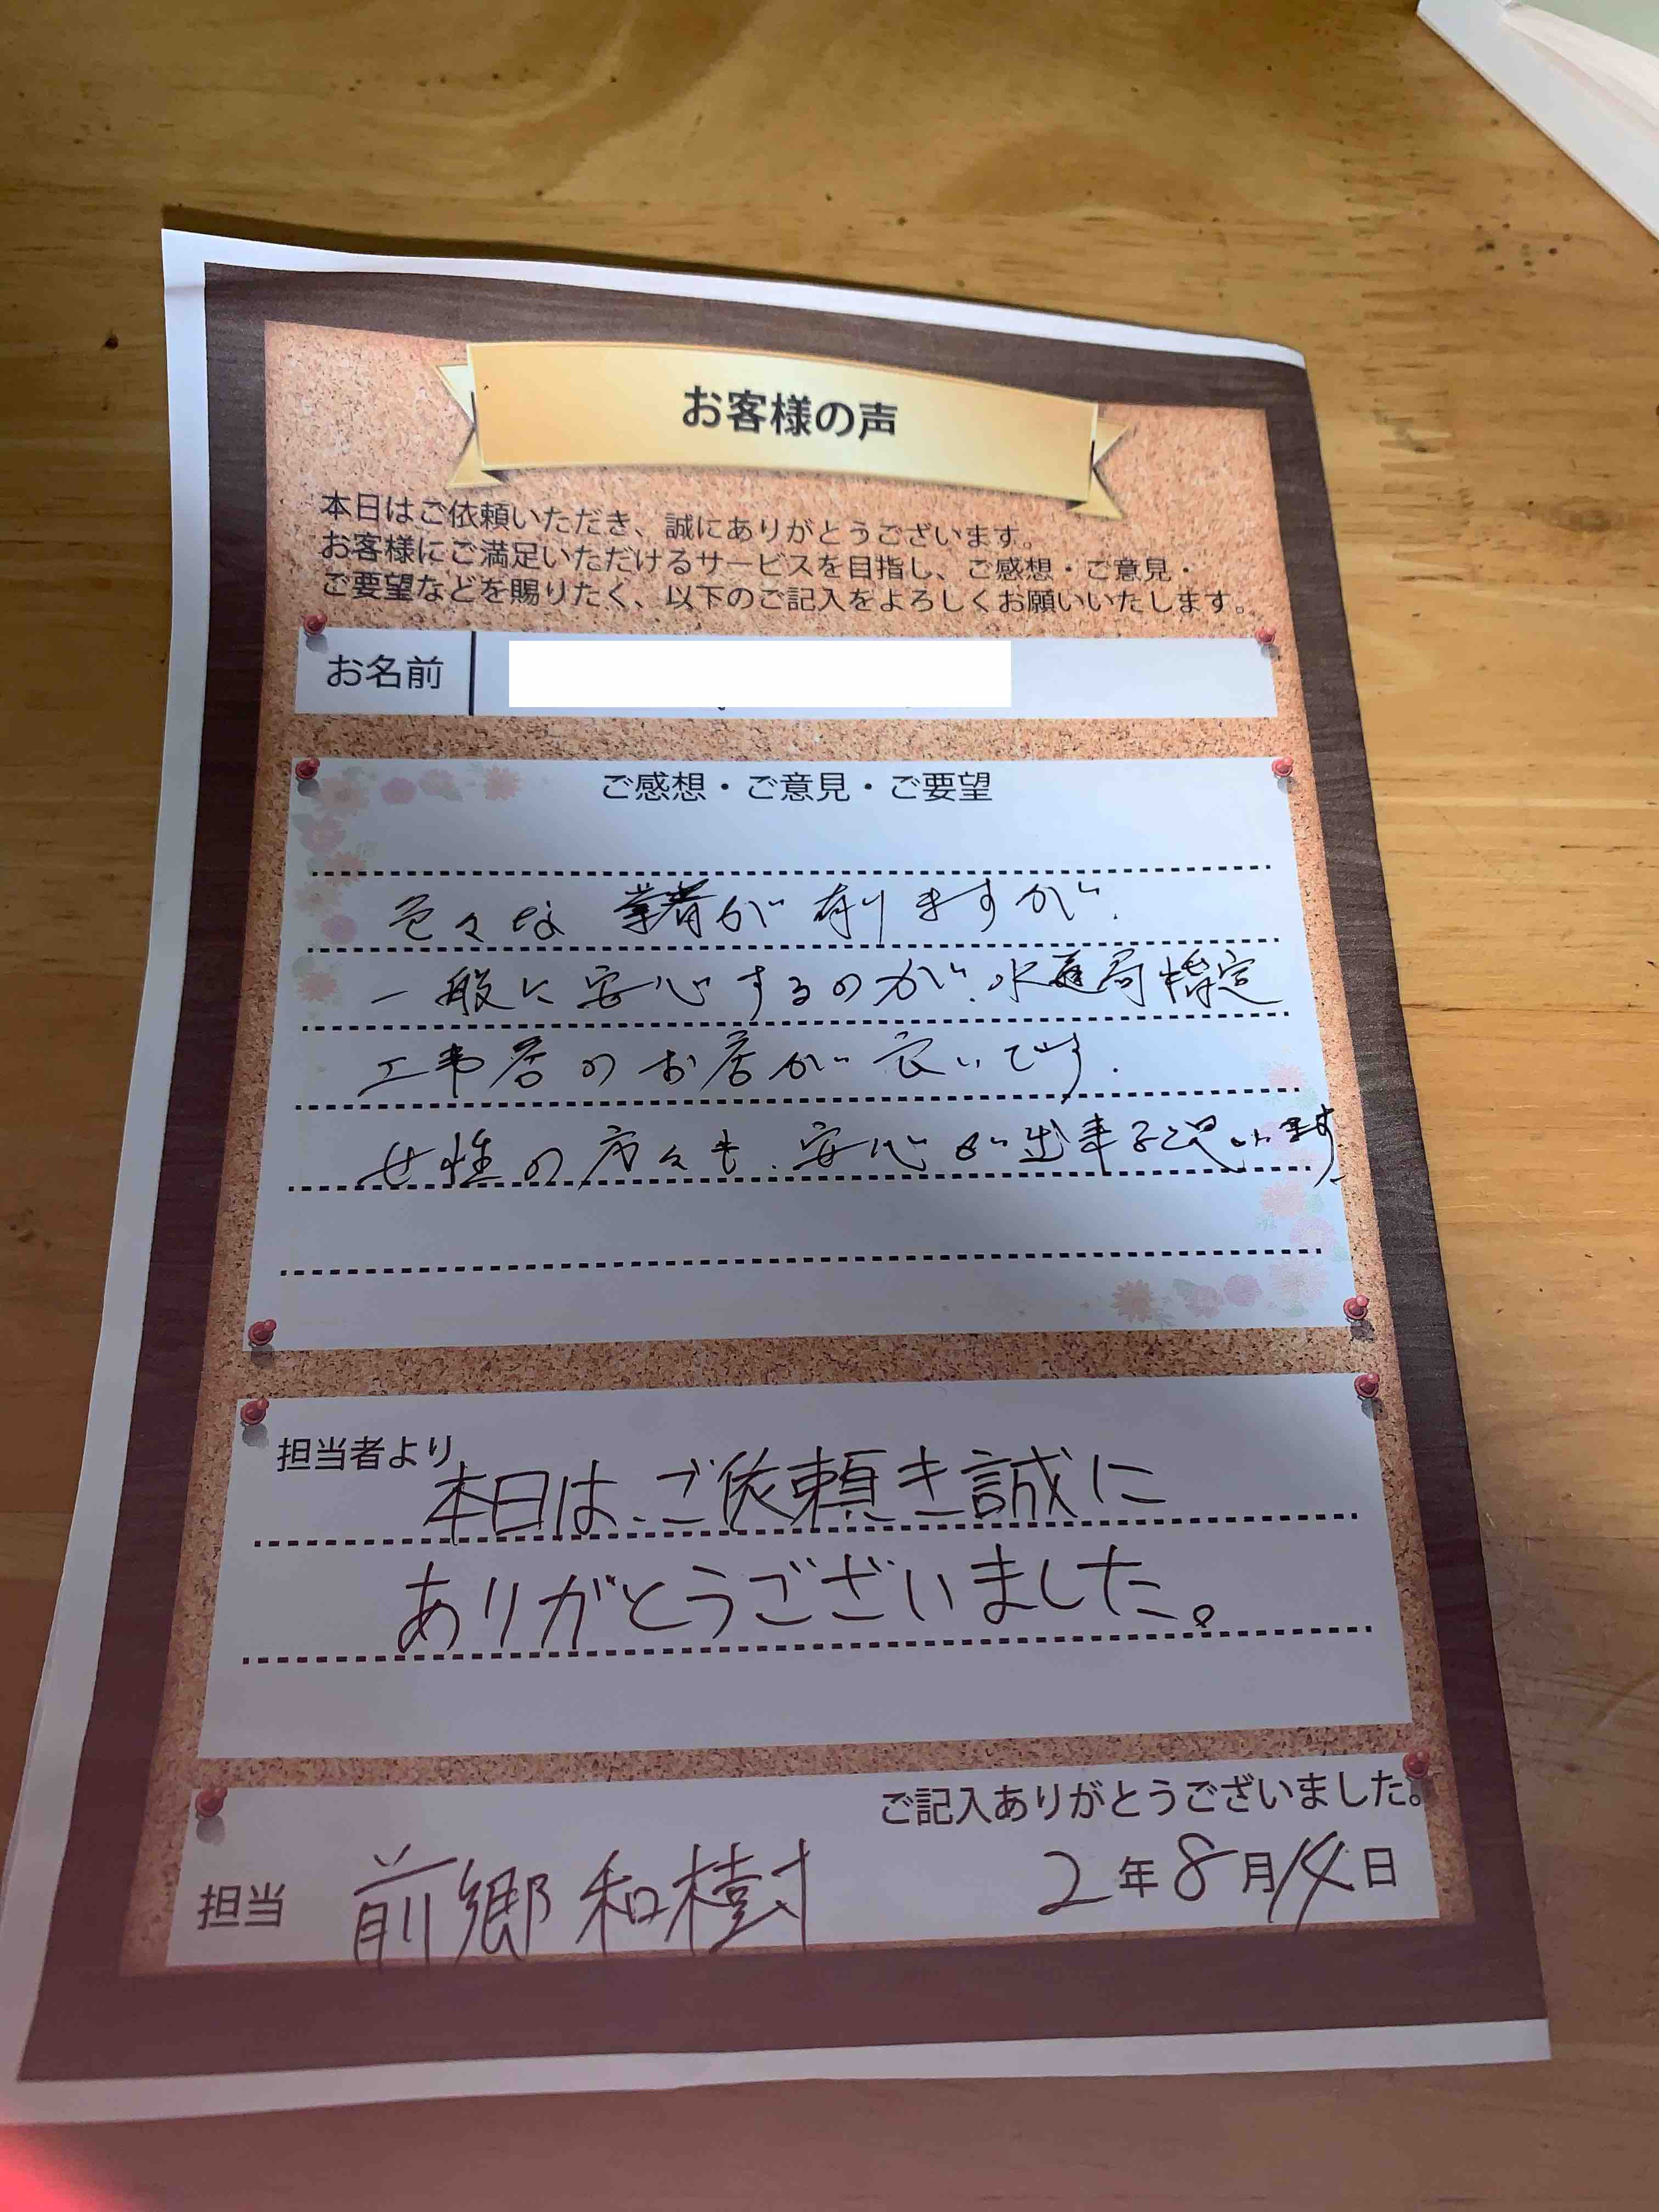 お客様の声
本日はご依頼いただき、誠にありがとうございます。
お客様にご満足いただけるサービスを目指し、ご感想・ご意見・
ご要望などを賜りたく、以下のご記入をよろしくお願いいたします。
お名前
ご感想・ご意見・ご要望
色々な業者が有りますが、
一般に安心するのが、水道局指定
工事店のお店が良いです.
女性の方々も、安心が出来ると思います
担当者より
本日は、ご依頼き誠に
ありがとうございました。
ご記入ありがとうございました。
担当 前郷和樹 2年8月14日